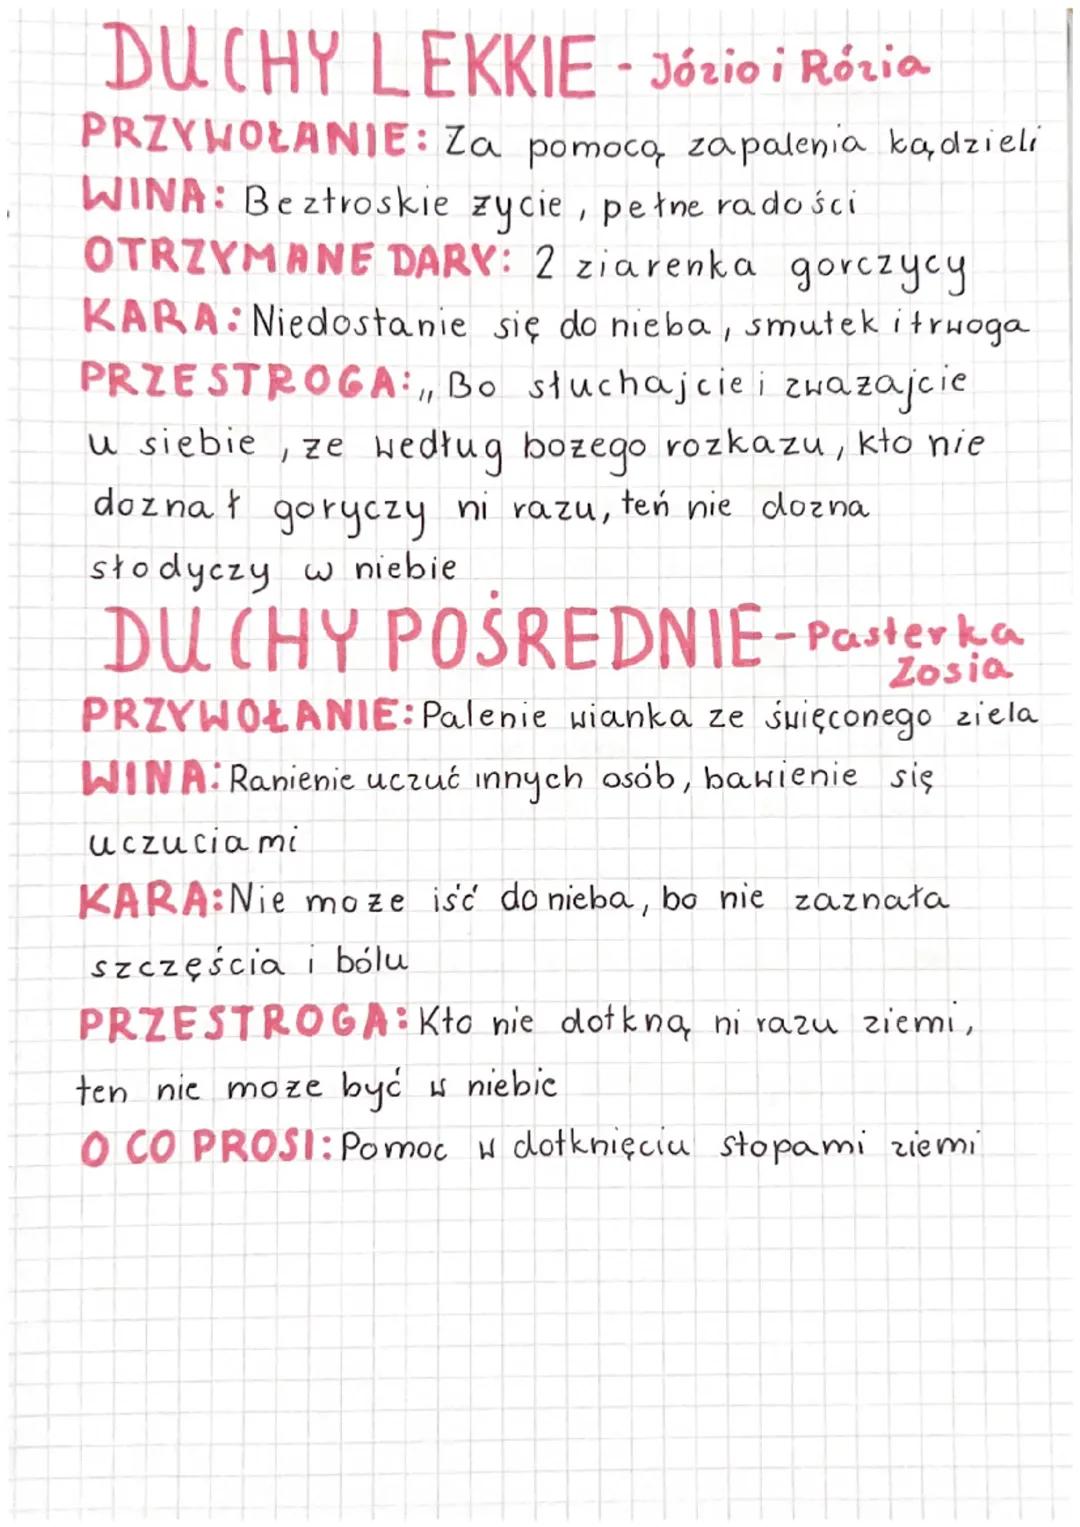 DUCHY LEKKIE - Józio i Rózia
PRZYWOŁANIE: Za pomocą zapalenia kądzieli
WINA: Beztroskie zycie, pełne radości
OTRZYMANE DARY: 2 ziarenka gorczycy
KARA: Niedostanie się do nieba, smutek i trwoga
PRZESTROGA: „Bo słuchajcie i zważajcie
u siebie, że według bożego rozkazu, kto nie
doznał goryczy ni razu, teń nie dozna
słodyczy w niebie
DUCHY POŚREDNIE - Pasterka
Zosia
PRZYWOŁANIE: Palenie wianka ze święconego ziela
WINA: Ranienie uczuć innych osób, bawienie się
uczuciami
KARA: Nie może iść do nieba, bo nie zaznała
szczęścia i bólu
PRZESTROGA: Kto nie dotkną ni razu ziemi,
ten nie może być w niebie
O CO PROSI: Pomoc w dotknięciu stopami ziemi